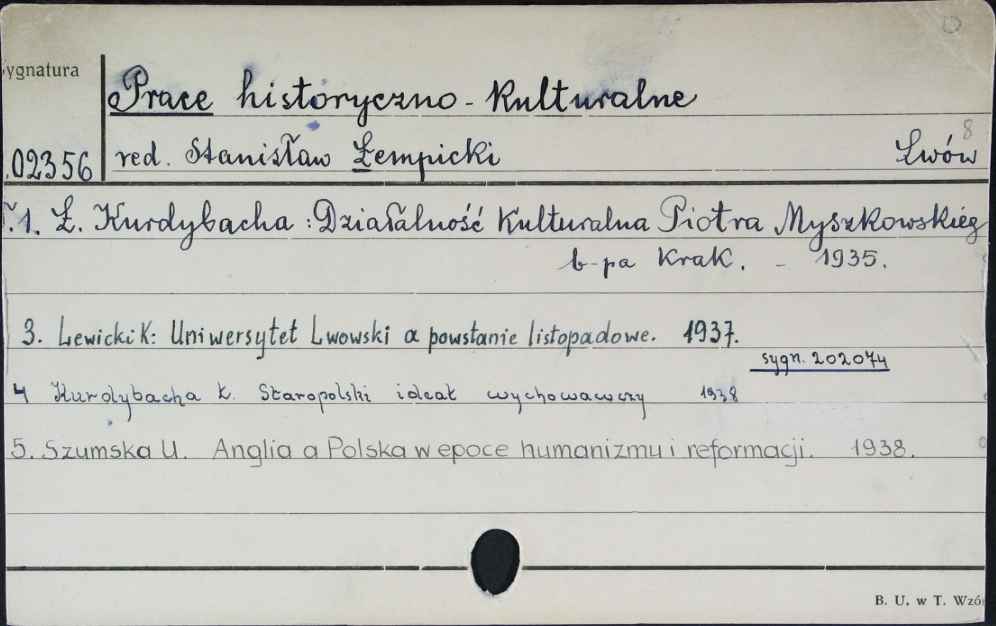 ygnatura
Prace historyczno-kulturalne
8
.02356 red. Stanisław Łempicki Lwów
T.1. Ł. Kurdybacha: Działalność kulturalna Piotra Myszkowskieg
b-pa krak. - 1935.
3. Lewicki K: Uniwersytet Lwowski a powstanie listopadowe. 1937.
sygn. 202074
4 Kurdybacha Ł. Staropolski ideał wychowawczy 1938
5. Szumska U. Anglia a Polska w epoce humanizmu i reformacji. 1938.
B. U. w T. Wzó